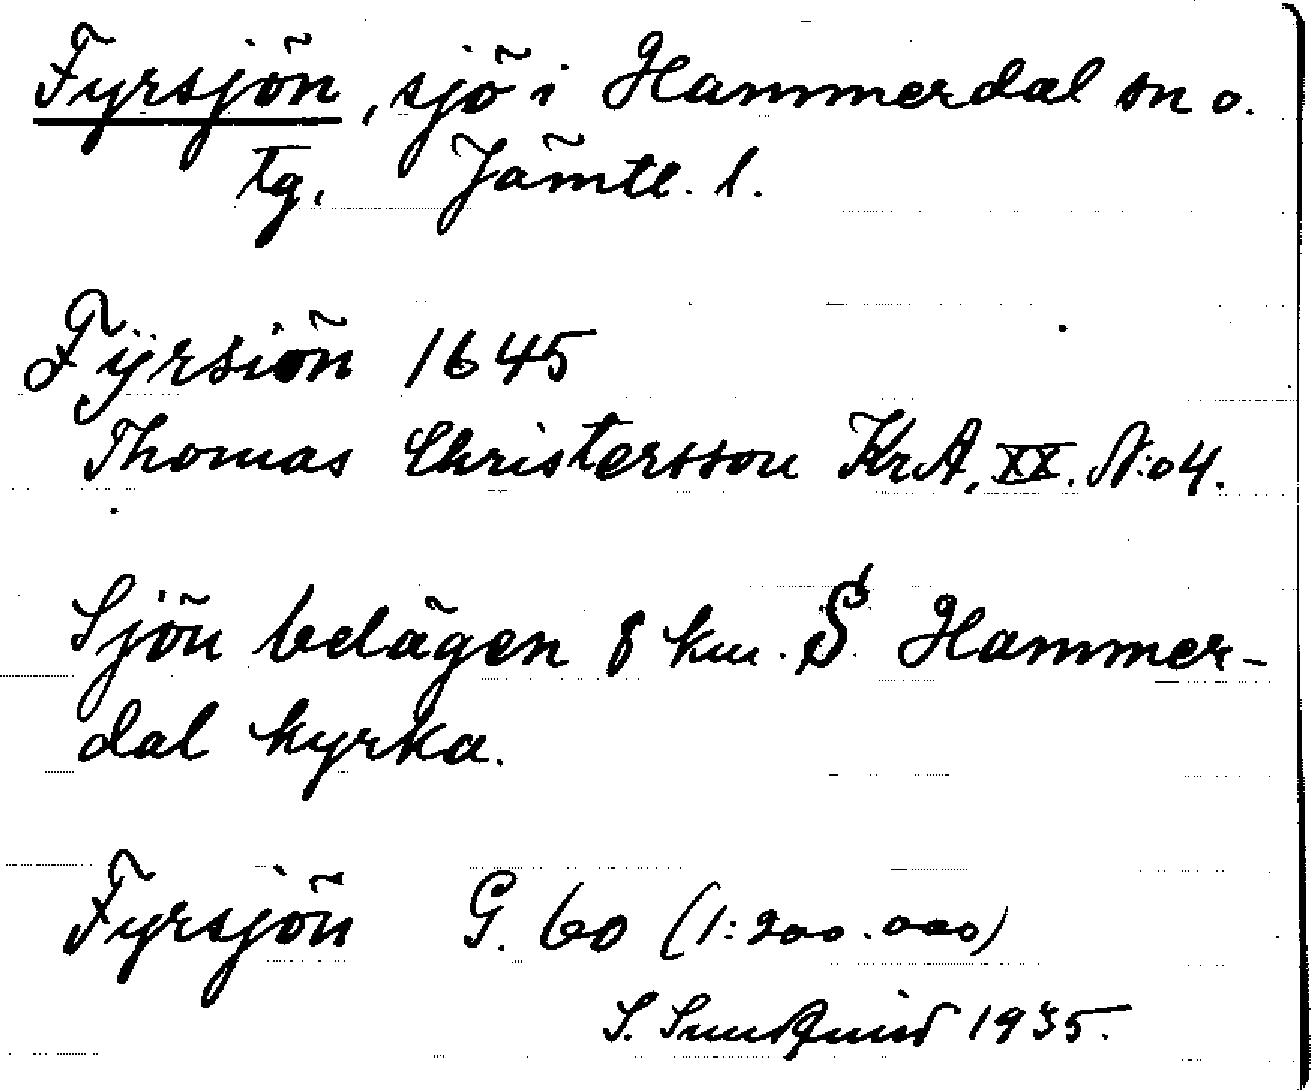 Fyrsjön, sjö i Hammerdal sn o.
tg. Jämtl. l.
Fÿrsiön 1645
Thomas Christersson KrA, XX. N:o 4.
Sjön belägen 8 km. S. Hammer-
dal kyrka.
Fyrsjön G. 60 (1:200.000)
S. Sundquist 1935.